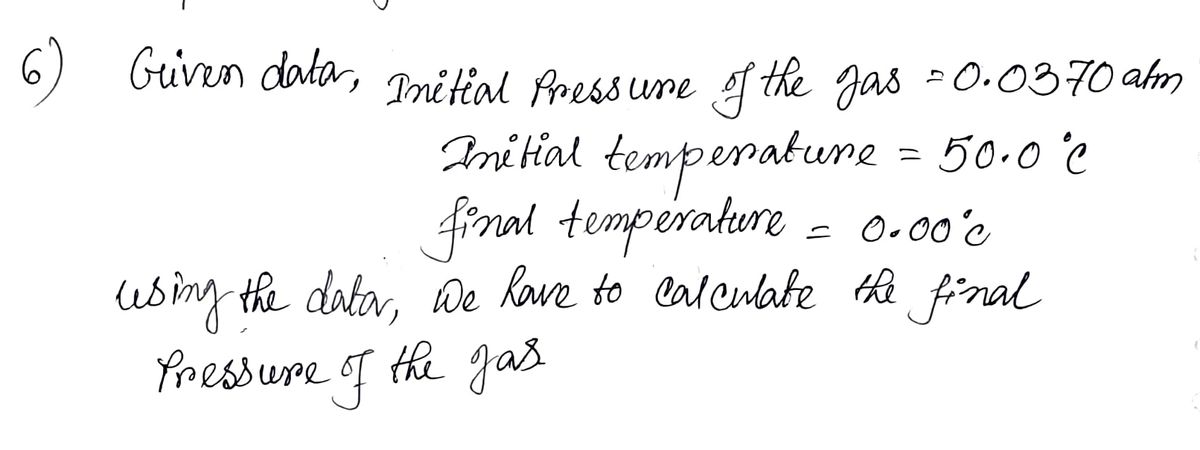 6) Given data, Initial Pressure of the gas = 0.0370 atm
Initial temperature = 50.0 °C
final temperature = 0.00°C
using the data, We have to Calculate the final
Pressure of the gas